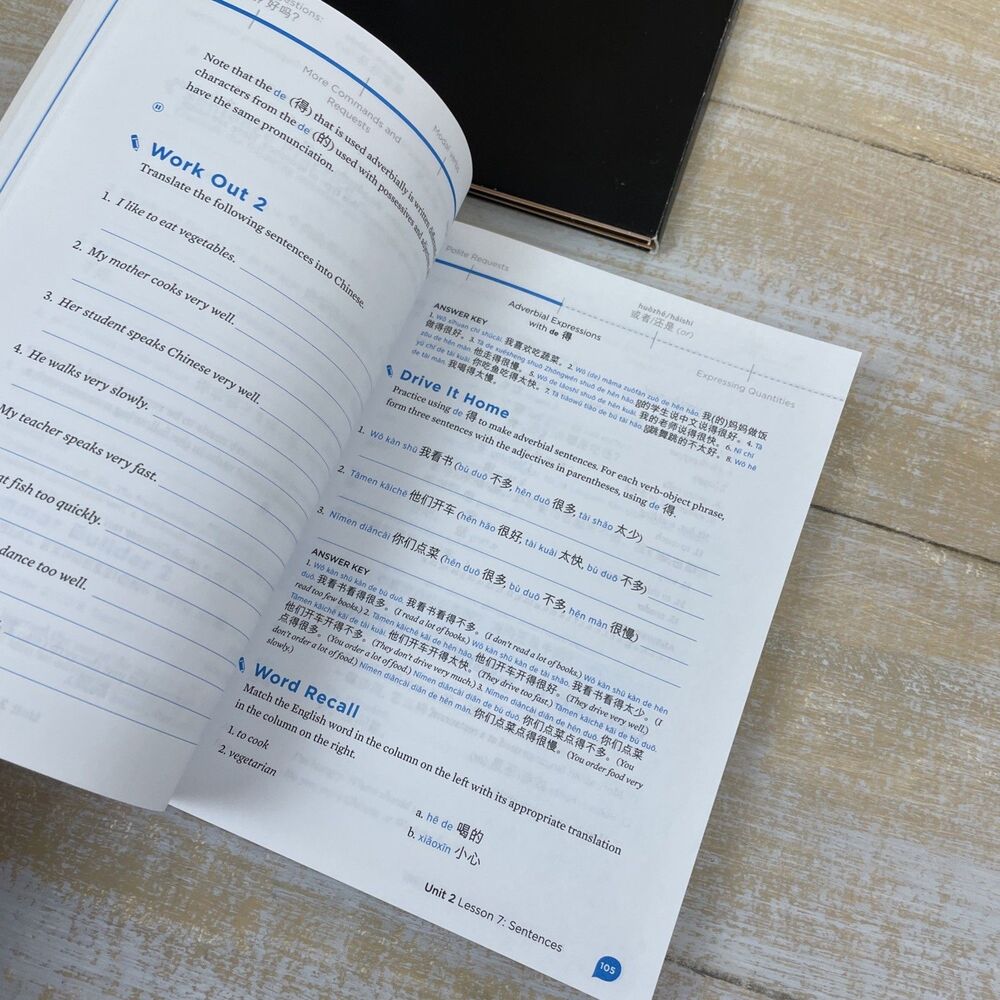 estions:
好吗?
More Commands and
Requests
Modal Verbs
Note that the de (得) that is used adverbially is written differen
characters from the de (的) used with possessives and adje
have the same pronunciation.
Work Out 2
Translate the following sentences into Chinese.
1. I like to eat vegetables.
2. My mother cooks very well.
3. Her student speaks Chinese very well.
4. He walks very slowly.
My teacher speaks very fast.
at fish too quickly.
dance too well.
Polite Requests
Adverbial Expressions
with de 得
huòzhě/háishi
或者/还是 (or)
Expressing Quantities
ANSWER KEY
1. Wǒ xǐhuan chī shūcài. 我喜欢吃蔬菜。 2. Wǒ (de) māma zuòfàn zuò de hěn hǎo. 我(的)妈妈做饭
做得很好。 3. Tā de xuésheng shuō Zhōngwén shuō de hěn hǎo. 她的学生说中文说得很好。 4. Tā
zǒu de hěn màn. 他走得很慢。 5. Wǒ de lǎoshī shuō de hěn kuài. 我的老师说得很快。 6. Nǐ chī
yú chī de tài kuài. 你吃鱼吃得太快。 7. Tā tiàowǔ tiào de bú tài hǎo. 她跳舞跳的不太好。 8. Wǒ hē
de tài màn. 我喝得太慢。
Drive It Home
Practice using de 得 to make adverbial sentences. For each verb-object phrase,
form three sentences with the adjectives in parentheses, using de 得.
1. Wǒ kàn shū 我看书 (bù duō 不多, hěn duō 很多, tài shǎo 太少)
2. Tāmen kāichē 他们开车 (hěn hǎo 很好, tài kuài 太快, bù duō 不多)
3. Nǐmen diǎncài 你们点菜 (hěn duō 很多, bù duō 不多, hěn màn 很慢)
ANSWER KEY
1. Wǒ kàn shū kàn de bù duō. 我看书看得不多。 (I don't read a lot of books.) Wǒ kàn shū kàn de hěn
duō. 我看书看得很多。 (I read a lot of books.) Wǒ kàn shū kàn de tài shǎo. 我看书看得太少。 (I
read too few books.) 2. Tāmen kāichē kāi de hěn hǎo. 他们开车开得很好。 (They drive very well.)
Tāmen kāichē kāi de tài kuài. 他们开车开得太快。 (They drive too fast.) Tāmen kāichē kāi de bù duō.
他们开车开得不多。 (They don't drive very much.) 3. Nǐmen diǎncài diǎn de hěn duō. 你们点菜
点得很多。 (You order a lot of food.) Nǐmen diǎncài diǎn de bù duō. 你们点菜点得不多。 (You
don't order a lot of food.) Nǐmen diǎncài diǎn de hěn màn. 你们点菜点得很慢。 (You order food very
slowly.)
Word Recall
Match the English word in the column on the left with its appropriate translation
in the column on the right.
1. to cook
2. vegetarian
a. hē de 喝的
b. xiǎoxīn 小心
Unit 2 Lesson 7: Sentences
105